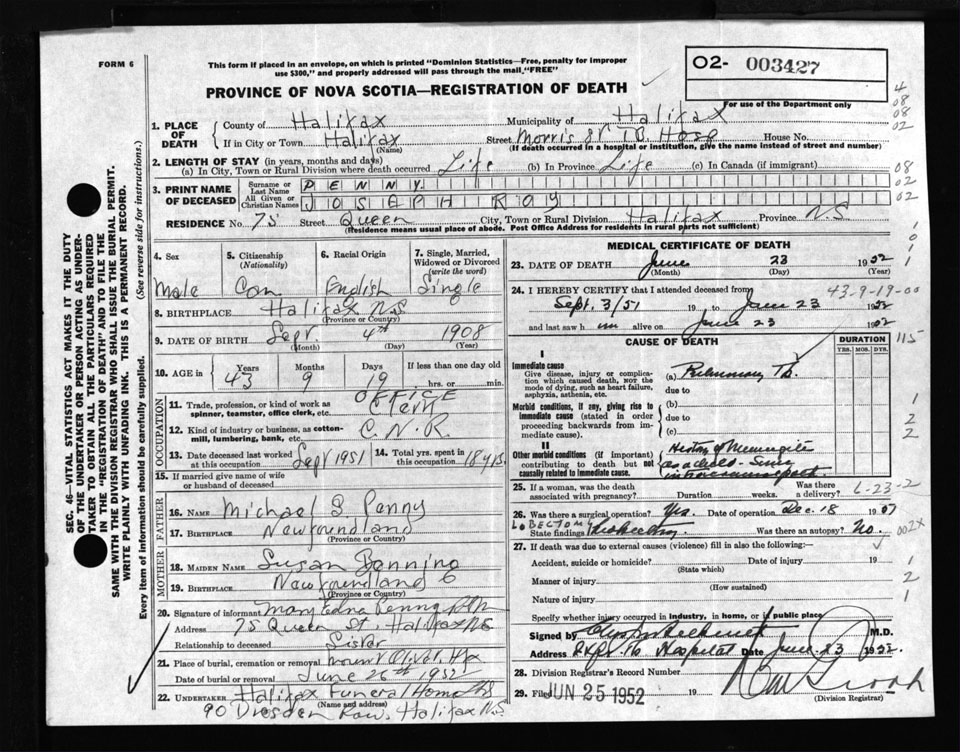 FORM 6
This form if placed in an envelope, on which is printed "Dominion Statistics—Free, penalty for improper
use $300," and properly addressed will pass through the mail, "FREE"
02- 003427
PROVINCE OF NOVA SCOTIA—REGISTRATION OF DEATH
For use of the Department only
4
08
08
02
1. PLACE OF DEATH
County of Halifax Municipality of Halifax
If in City or Town Halifax Street Morris St T.B. Hosp House No.
(Name) (If death occurred in a hospital or institution, give the name instead of street and number)
2. LENGTH OF STAY (in years, months and days)
(a) In City, Town or Rural Division where death occurred Life (b) In Province Life (c) In Canada (if immigrant)
08
02
02
3. PRINT NAME OF DECEASED
Surname or Last Name PENNY
All Given or Christian Names JOSEPH ROY
RESIDENCE No. 75 Street Queen City, Town or Rural Division Halifax Province N.S.
(Residence means usual place of abode. Post Office Address for residents in rural parts not sufficient)
SEC. 46—VITAL STATISTICS ACT MAKES IT THE DUTY
OF THE UNDERTAKER OR PERSON ACTING AS UNDER-
TAKER TO OBTAIN ALL THE PARTICULARS REQUIRED
IN THE "REGISTRATION OF DEATH" AND TO FILE THE
SAME WITH THE DIVISION REGISTRAR WHO SHALL ISSUE THE BURIAL PERMIT.
WRITE PLAINLY WITH UNFADING INK. THIS IS A PERMANENT RECORD.
(See reverse side for instructions.)
Every item of information should be carefully supplied.
4. Sex
Male
5. Citizenship
(Nationality)
Can
6. Racial Origin
English
7. Single, Married,
Widowed or Divorced
(write the word)
Single
8. BIRTHPLACE Halifax N.S.
(Province or Country)
9. DATE OF BIRTH Sept. 4th 1908
(Month) (Day) (Year)
10. AGE in Years Months Days If less than one day old
43 9 19 hrs. or min.
OCCUPATION
11. Trade, profession, or kind of work as
spinner, teamster, office clerk, etc.
OFFICE
Clerk
12. Kind of industry or business, as cotton-
mill, lumbering, bank, etc. C.N.R.
13. Date deceased last worked
at this occupation Sept 1951
14. Total yrs. spent in
this occupation 18 yrs.
15. If married give name of wife
or husband of deceased
FATHER
16. NAME Michael S Penny
17. BIRTHPLACE Newfoundland
(Province or Country)
MOTHER
18. MAIDEN NAME Susan Banning
19. BIRTHPLACE Newfoundland
(Province or Country)
20. Signature of informant Mary Edna Penny
Address 75 Queen St. Halifax NS
Relationship to deceased Sister
21. Place of burial, cremation or removal Mount Olivet, Hfx
Date of burial or removal June 26th 1952
22. UNDERTAKER Halifax Funeral Home
(Name and address)
90 Dresden Row. Halifax N.S.
MEDICAL CERTIFICATE OF DEATH
23. DATE OF DEATH June 23 1952
(Month) (Day) (Year)
1
0
1
1
24. I HEREBY CERTIFY that I attended deceased from
43-9-19-00
Sept. 3/51 19 to June 23 1952
and last saw h im alive on June 23 1952
CAUSE OF DEATH
DURATION
YRS. MOS. DYS.
115
I
Immediate cause
Give disease, injury or complica-
tion which caused death, NOT the
mode of dying, such as heart failure,
asphyxia, asthenia, etc.
(a) Pulmonary Tb.
due to
Morbid conditions, if any, giving rise to
immediate cause (stated in order
proceeding backwards from im-
mediate cause).
(b)
due to
(c)
1
2
2
II
Other morbid conditions (if important)
contributing to death but not
causally related to immediate cause.
History of Meningitis
25. If a woman, was the death
associated with pregnancy? Duration weeks. Was there
a delivery?
6-23-2
26. Was there a surgical operation? Yes. Date of operation Dec. 18 19
LOBECTOMY
State findings Was there an autopsy? No.
002X
27. If death was due to external causes (violence) fill in also the following:—
Accident, suicide or homicide? Date of injury 19
(State which)
Manner of injury
(How sustained)
Nature of injury
1
2
1
Specify whether injury occurred in industry, in home, or in public place
Signed by M.D.
Address Hospital Date June 23 1952.
28. Division Registrar's Record Number
29. Filed JUN 25 1952 29.
(Division Registrar)